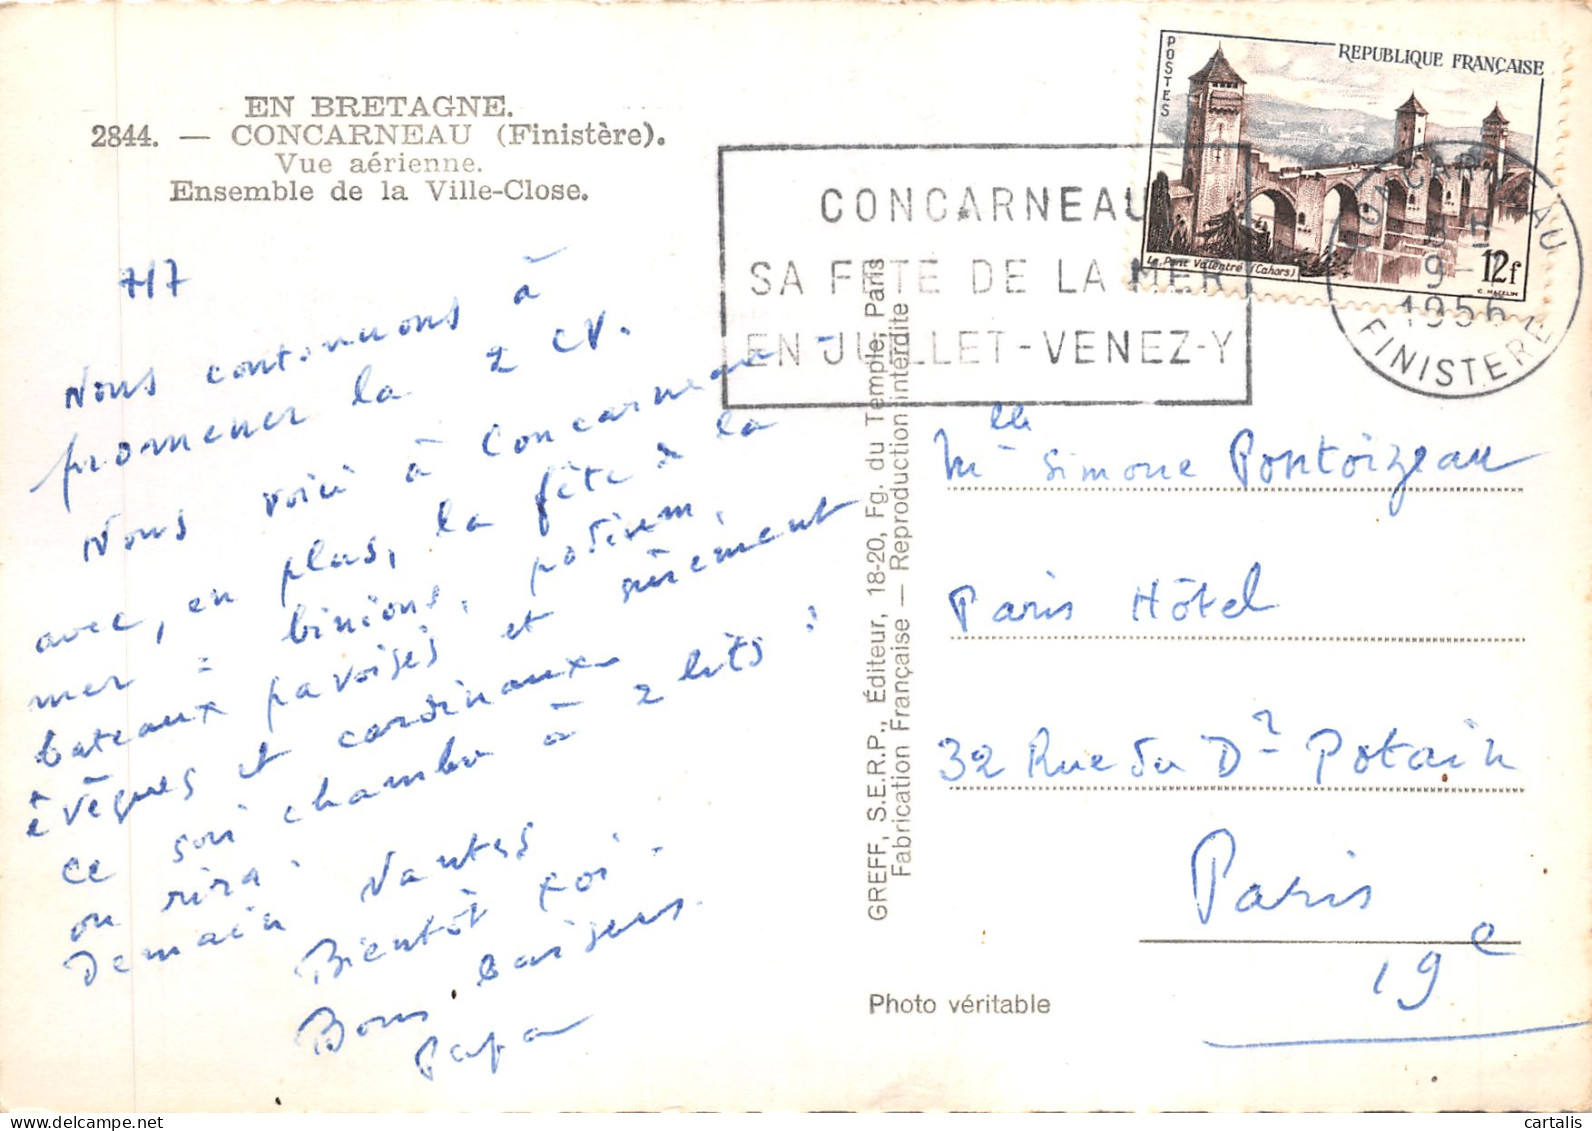 EN BRETAGNE.
2844. — CONCARNEAU (Finistère).
Vue aérienne.
Ensemble de la Ville-Close.
7/7
Nous continuons à
promener la 2 CV.
Nous voici à Concarneau -
avec, en plus, la fête de la
mer : binious,
bateaux pavoisés et sûrement
évêques et cardinaux
ce soir chambre à 2 lits :
on rira.
Demain Nantes
Bientôt toi.
Bons baisers.
Papa
GREFF, S.E.R.P., Éditeur, 18-20, Fg. du Temple, Paris
Fabrication Française — Reproduction interdite
Photo véritable
CONCARNEAU
SA FETE DE LA MER
EN JUILLET-VENEZ-Y
POSTES
REPUBLIQUE FRANÇAISE
Le Pont Valentré (Cahors)
12f
C. MAZELIN
CONCARNEAU
9-
1956
FINISTERE
Mlle Simone Pontoizeau
Paris Hôtel
32 Rue du Dr Potain
Paris
19e
cartalis